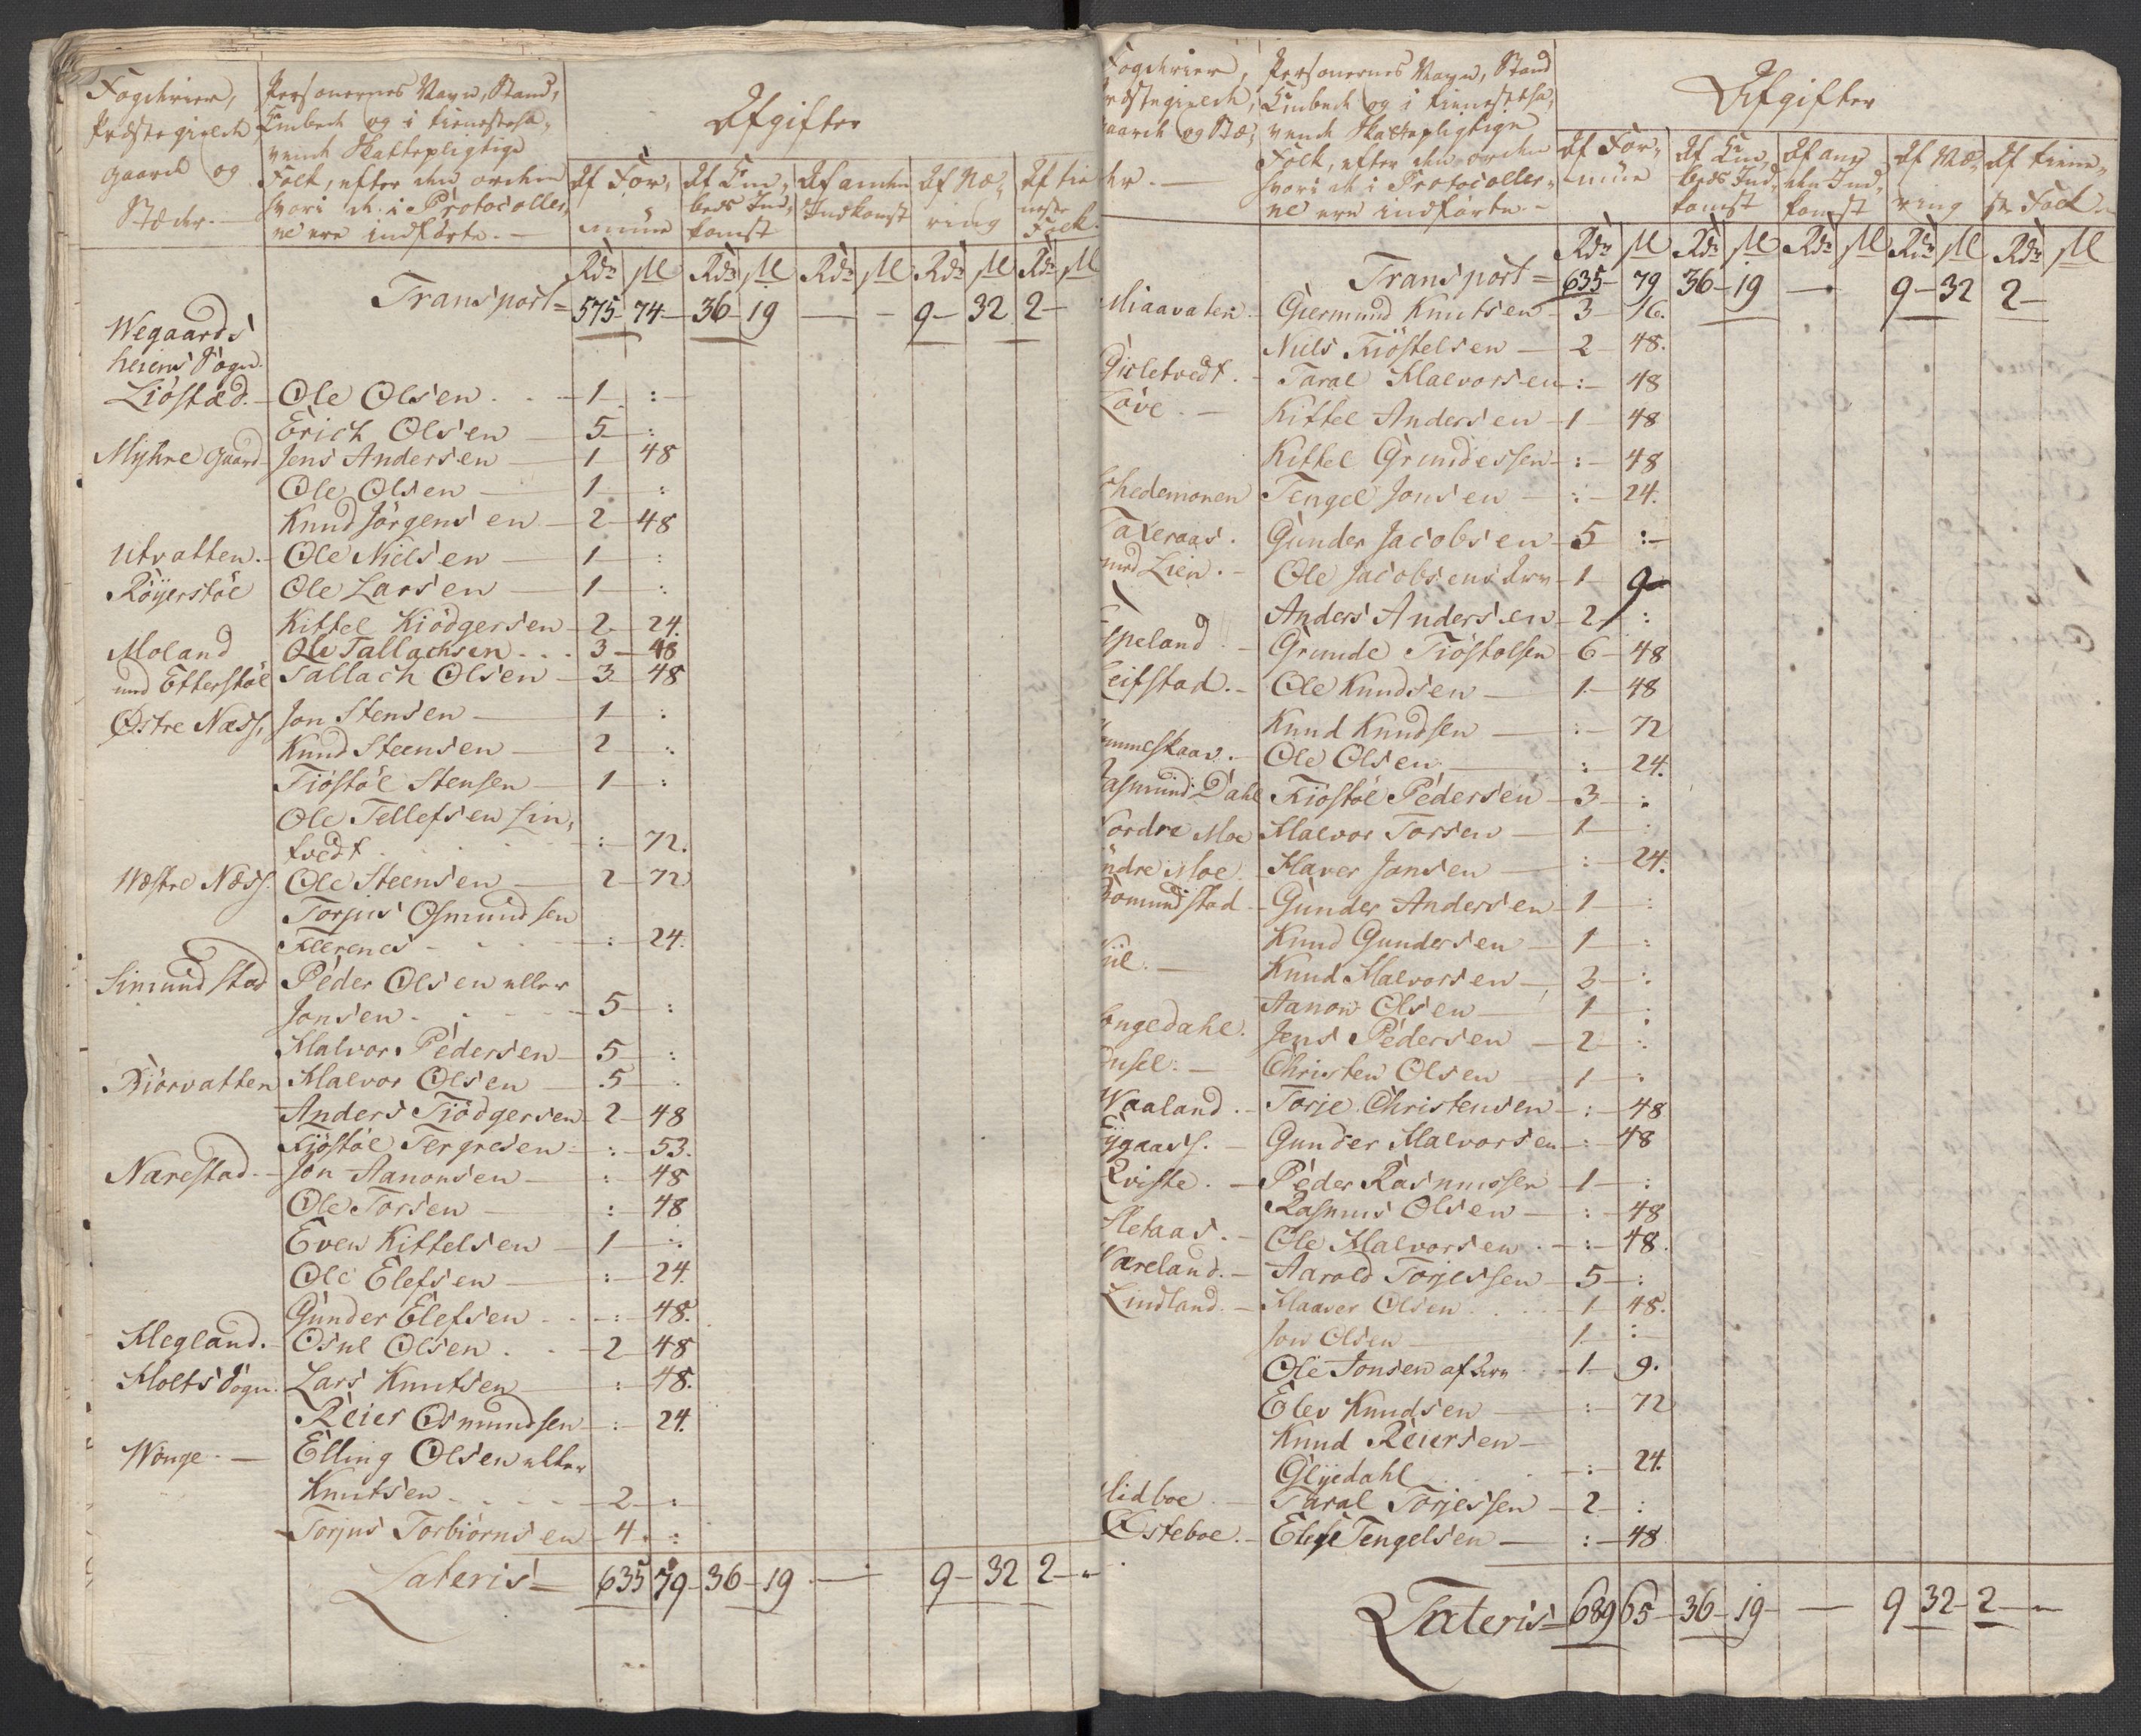 Fogderier,
Præstegield
Gaarde og
Stæder.
Personernes Navn, Stand,
Embede og i tienestesta-
vende Skattepligtige
Folk, efter den orden
hvori de i Protocoller,
ne ere indførte.
Afgifter
Af For,
mue
Af Em,
beds Ind,
komst
Af anden
Indkomst
Af Næ,
ring
Af tie
neste
Folk.
Rdr ſk Rdr ſk Rdr ſk Rdr ſk Rdr ſk
Transport = 575 - 74 - 36 - 19 — - 9 - 32 2 -
Wegaards
heiens Sogn.
Liöstad. - Ole Olsen . . - 1 - : -
Erich Olsen — 5 - :
Myhre Gaard - Jens Andersen — 1 - 48
Ole Olsen — 1 - :
Knud Jörgensen - 2 - 48
Utvatten. - Ole Nielsen — 1 - :
Röyerstöl Ole Larsen — 1 - :
Kittel Kiödgersen - 2 - 24.
Moland Ole Tallachsen . . . 3 - 48
und Etterstöl Tallach Olsen - 3 - 48
Østre Næss, Jon Stensen — 1 - :
Knud Steensen — 2 - :
Tiöstöl Stensen — 1 - :
Ole Tellefsen Lin,
tvedt . . . : - 72.
Westre Næss. Ole Steensen — 2 - 72
Torjus Osmundsen
. . . : - 24.
Simundstad Peder Olsen eller
Jonsen . . . - 5 - :
Halvor Pedersen - 5 - :
Biorvatten Halvor Olsen - 5 - :
Anders Tiödgersen - 2 - 48
Tiöstöl Tergresen - : - 53.
Narestad. - Jon Aanonsen — : - 48
Ole Torsen — : - 48
Even Kittelsen — 1 - :
Ole Elefsen — : - 24.
Gunder Elefsen . . - : - 48.
Hegland. - Osul Olsen . . - 2 - 48
Holts Sogn. Lars Knutsen — : - 48.
Reier Osmundsen - : - 24.
Wonge. — Elling Olsen eller
Knutsen . . . - 2 - :
Torjus Torbiörnsen - 4 . :
Lateris = 635 79 - 36 - 19 — - 9 - 32 2 - -
Fogderier,
ræstegield,
aarde og Stæ,
der. —
Personernes Navn, Stand
Embede og i tienestesta,
vende Skattepligtige
Folk, efter den orden
hvori de i Protocoller,
ne ere indførte. -
Afgifter
Af For,
mue
Af Em,
beds Ind,
komst
Af an,
den Ind,
komst
Af Næ,
ring
Af tiene,
ste Folk.
Rdr ſk Rdr ſk Rdr ſk Rdr ſk Rdr ſk
Transport = 635 - 79 36 - 19 — 9 - 32 2 -
Miaavaten. Giermund Knutsen - 3 - 16.
Niels Tiöstelsen — 2 - 48.
Gisletvedt. - Taral Halvorsen - : - 48
Löve. - Kittel Andersen - 1 - 48
Kittel Grundessen - : - 48
hedemonen Tengel Jonsen — : - 24.
Taxeraas. Gunder Jacobsen - 5 : -
und Lien. - Ole Jacobsens - 1 - 9
Anders Andersen - 2 :
speland. - Grunde Tiöstolsen 6 - 48
Leifstad. - Ole Knudsen — 1 - 48
Knud Knudsen — : - 72
Ole Olsen — : - 24.
asmund Dahl Tiöstöl Pedersen - 3 - :
Nordre Moe Halvor Torsen — 1 - :
ndre Moe Haver Jonsen — : - 24.
omundstad - Gunder Andersen - 1 - :
Knud Gundersen — 1 - :
Knud Halvorsen — 3 - :
Aanon Olsen — 1 - :
ongedahl. Jens Pedersen - 2 - :
Christen Olsen — 1 - :
Waaland. - Torje Christensen - : - 48
ygaass. - Gunder Halvorsen - : - 48
Qviste. - Peder Rasmussen - 1 - :
Rasmus Olsen — : - 48
Sletaas. - Ole Halvorsen . - : - 48.
Wareland. - Aarold Torjessen - 5 - :
Lindland. - Haaver Olsen . . - 1 - 48.
Jon Olsen — 1 - : -
Ole Jonsen af . - 1 - 9.
Elev Knudsen — : - 72
Knud Reiersen -
Glyedahl . . - : - 24.
Midboe . - Taral Torjessen - 2 - :
Østeboe. - Elef Tengelsen — : - 48
Lateris = 689 65 - 36 - 19 - — 9 32 - 2 - -